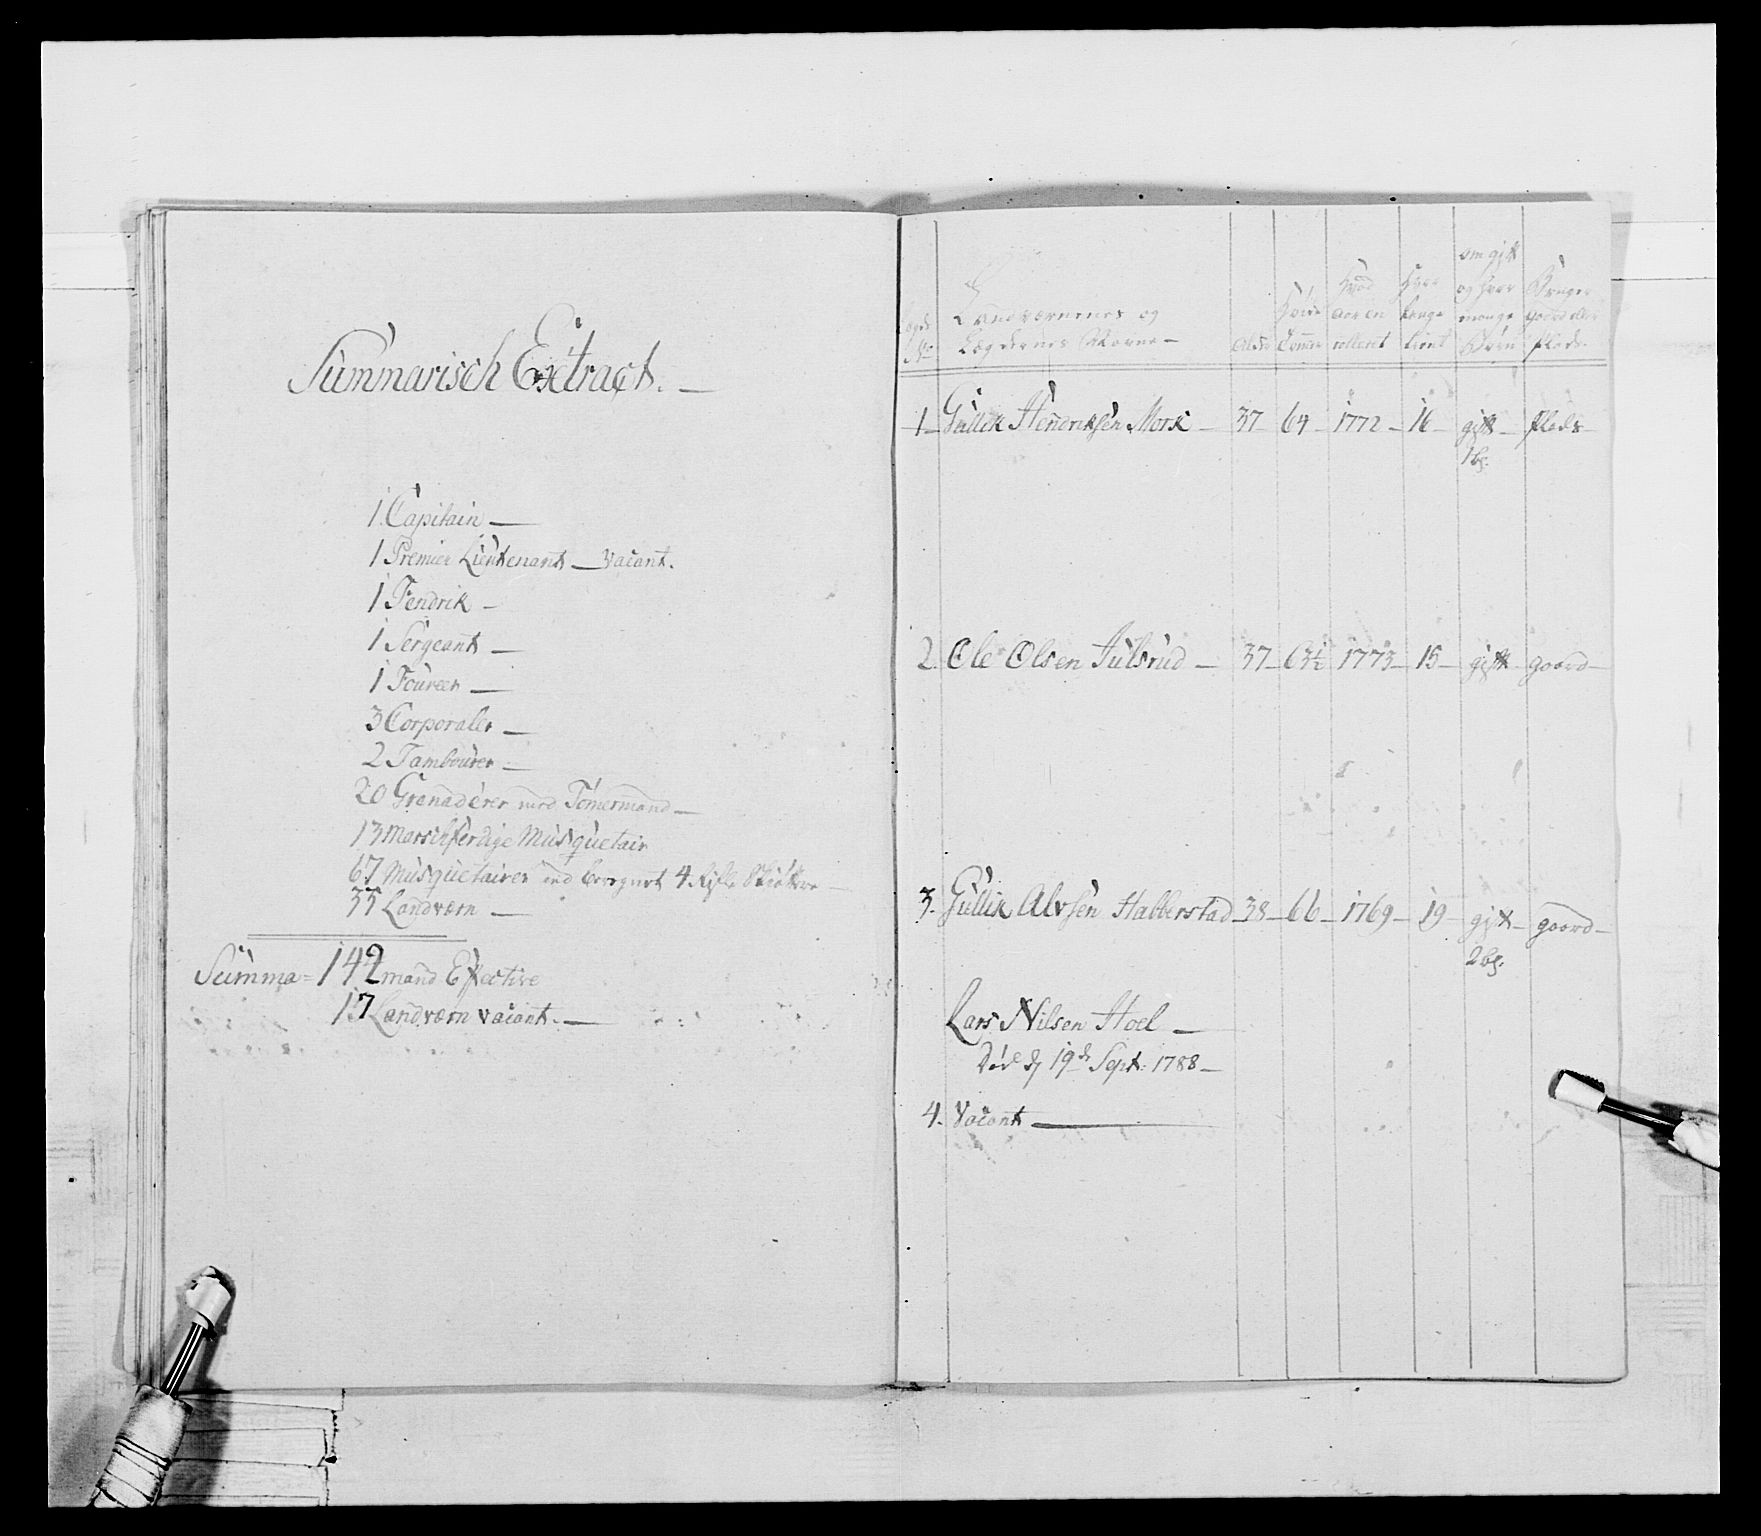 Summarisch Extract. —
1 Capitain —
1 Premier Lieutenant — vacant.
1 Fendrik —
1 Sergeant —
1 Foureer —
3 Corporaler —
2 Tambourer —
20 Granaderer med Tømermand —
13 Marschferdige Musquetair
67 Musquetairer ind beregnet 4 Rifle Skøttere —
33 Landværn —
Summa = 142 mand Effective
17 Landværn vacant. —
No Landværnenes og Lægdernes Navne — Alder Høide Tommer Hvad Aar en rolleret Hvor længe tient om gift og hvor mange Børn Bruger Gaard eller Plads.
1 Gullik Hendriksen Mork — 37 — 64 — 1772 — 16 — gift — Plads —
1 b.
2 Ole Olsen Julsrud — 37 — 63½ 1773 — 15 — gift — goord —
3. Gullik Alvsen Habberstad — 38 — 66 — 1769 — 19 — gift — goord —
2 b.
Lars Nilsen Hoel —
Død d 19de Sept: 1788 —
4. Vacant —